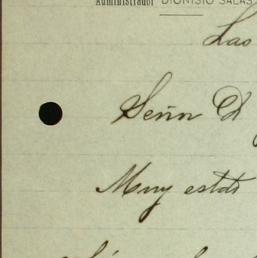 Administrador DIONISIO SALAS
Las
Señor D
Muy estd